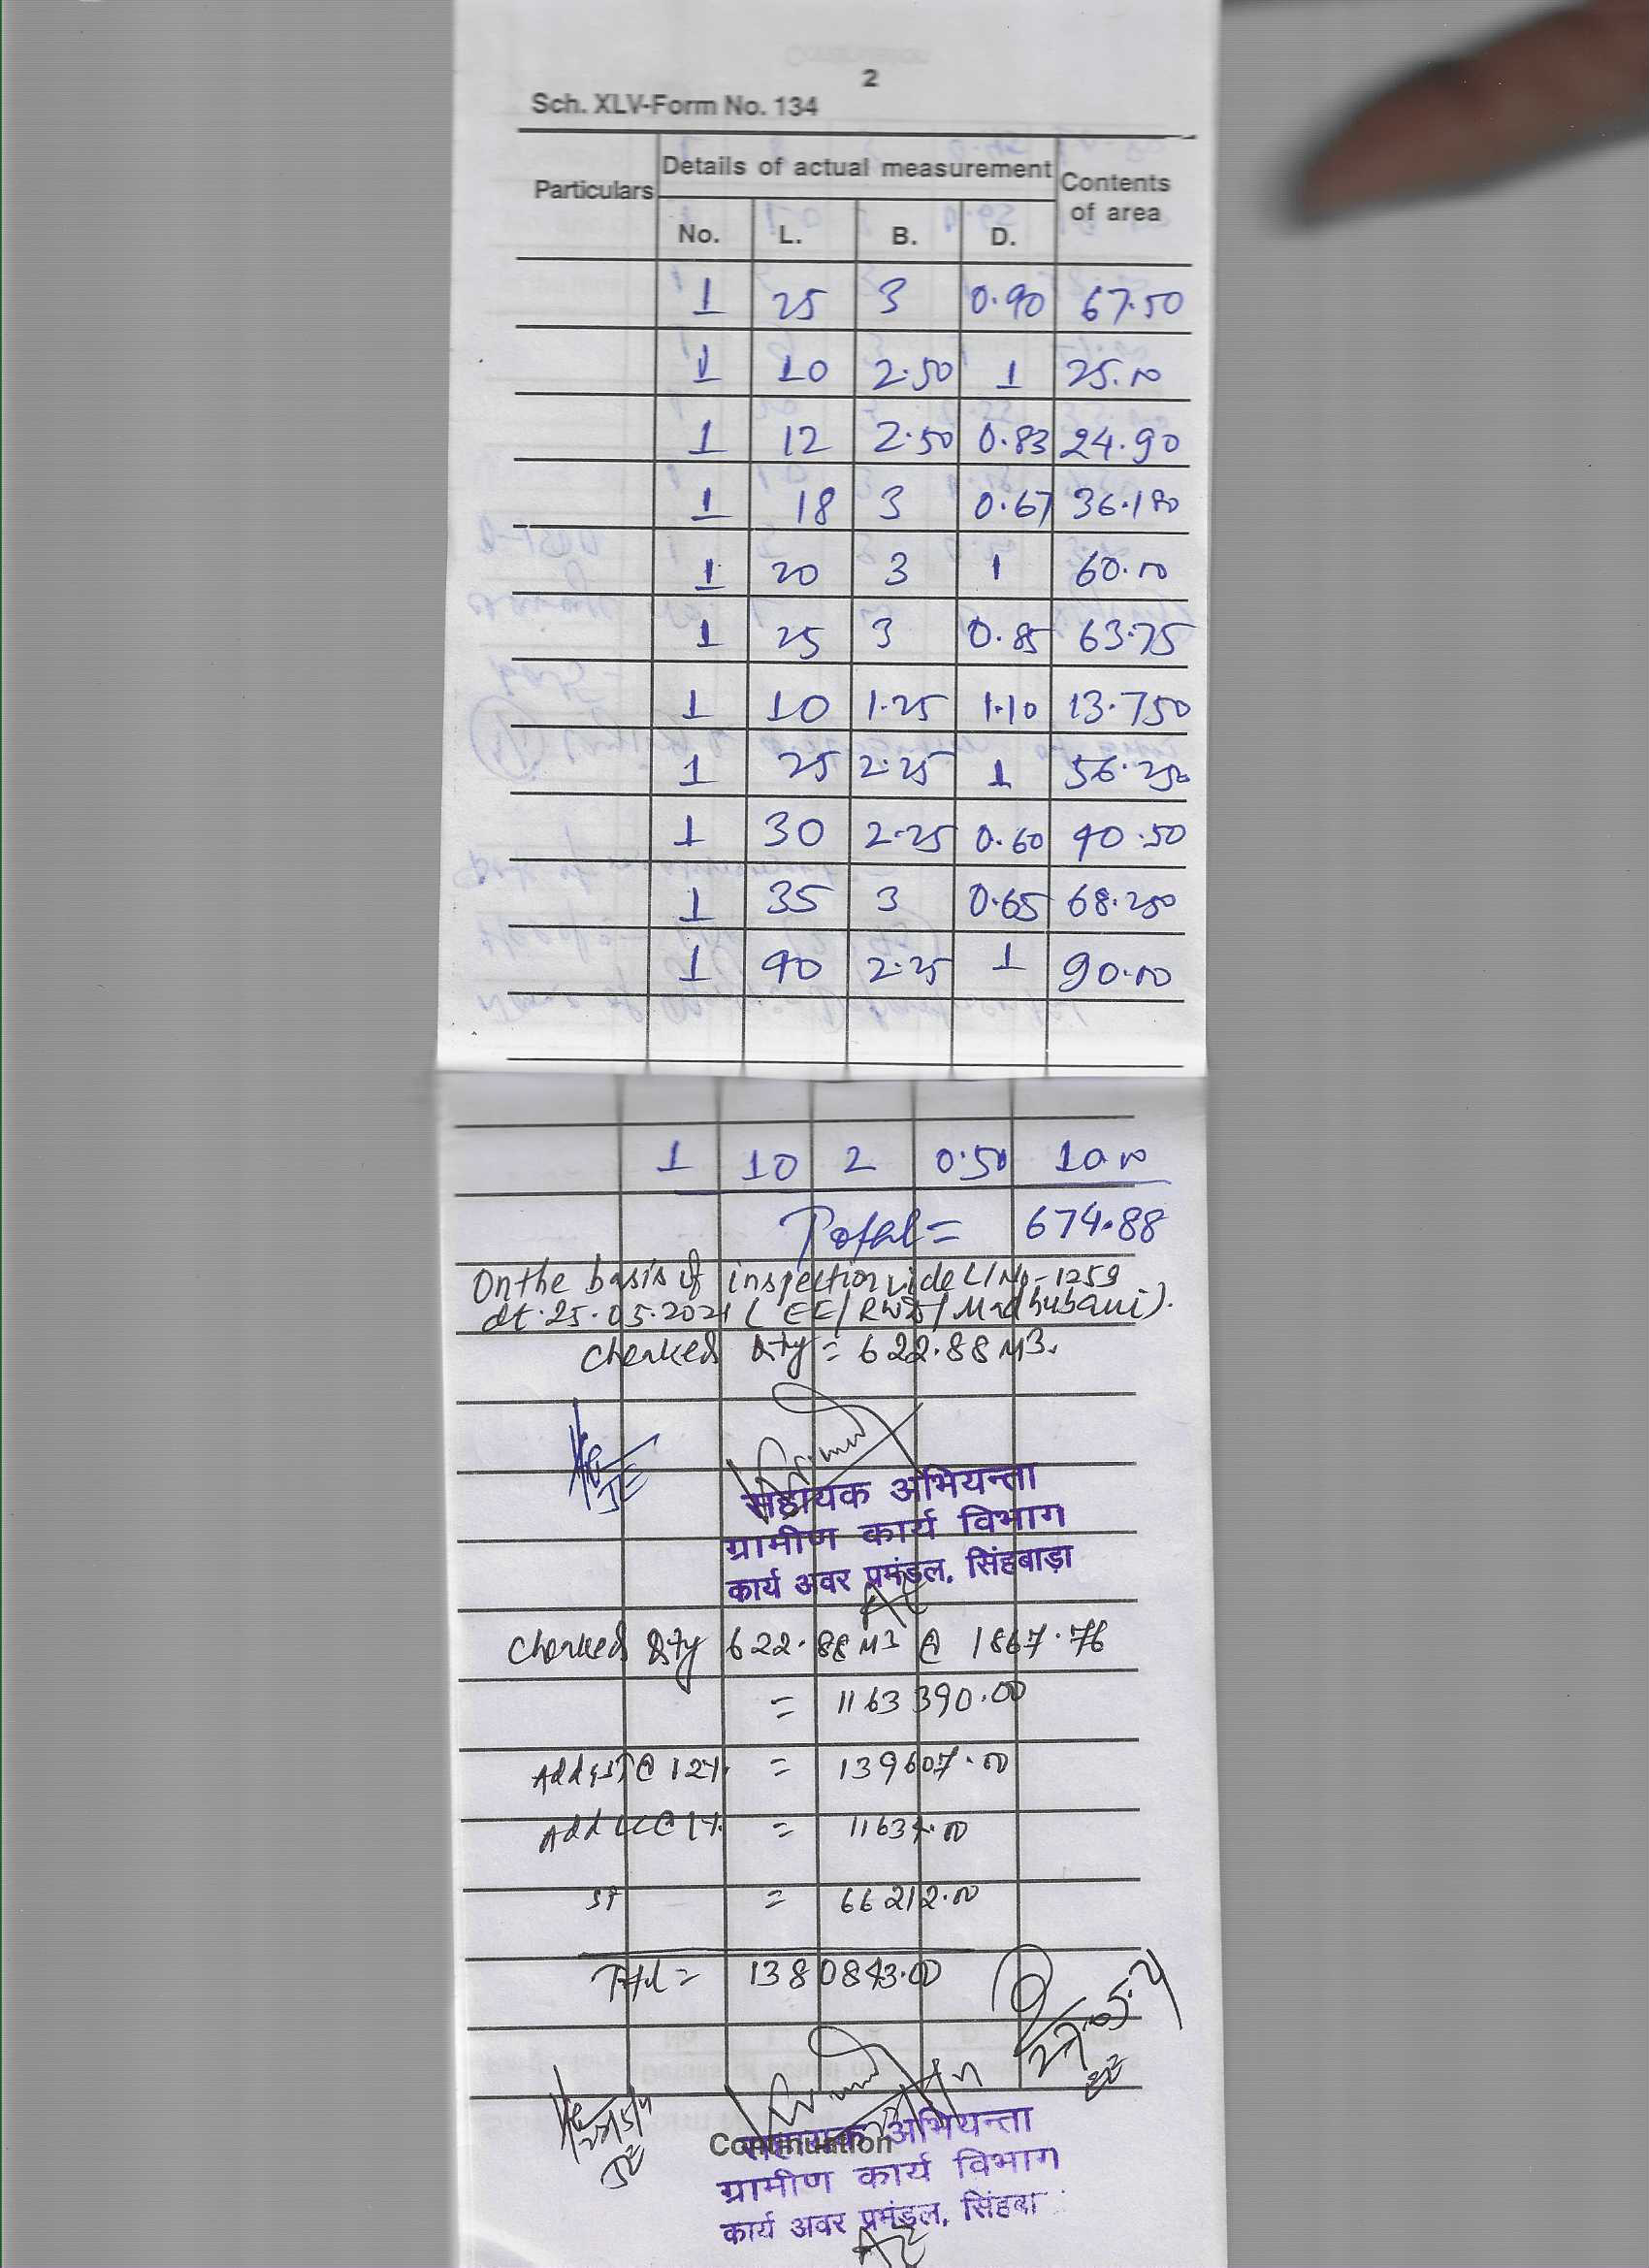 2
Sch. XLV-Form No. 134
Particulars Details of actual measurement Contents of area
No. L. B. D.
1 25 3 0.90 67.50
1 10 2.50 1 25.00
1 12 2.50 0.83 24.90
1 18 3 0.67 36.180
1 20 3 1 60.00
1 25 3 0.85 63.75
1 10 1.25 1.10 13.750
1 25 2.25 1 56.250
1 30 2.25 0.60 40.50
1 35 3 0.65 68.250
1 40 2.25 1 90.00
1 10 2 0.50 10.00
Total = 674.88
On the basis of inspection vide L/No-1259
dt. 25.05.2021 (EE/RWD/Madhubani).
Checked Qty = 622.88 M3.
JE
सहायक अभियन्ता
ग्रामीण कार्य विभाग
कार्य अवर प्रमंडल, सिंहबाड़ा
AE
Checked Qty 622.88 M3 @ 1867.76
= 1163390.00
Add GST @ 12% = 139607.00
Add LC @ 1% = 11634.00
SF = 66212.00
Total = 1380843.00
27.05.21
JE
सहायक अभियन्ता
Continuation
ग्रामीण कार्य विभाग
कार्य अवर प्रमंडल, सिंहबा
AE